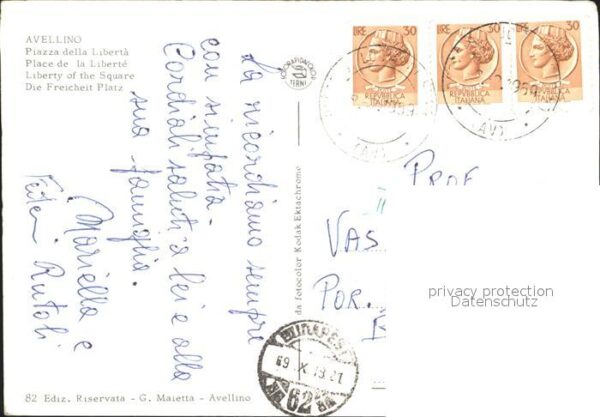 AVELLINO
Piazza della Libertà
Place de la Liberté
Liberty of the Square
Die Freicheit Platz
La ricordiamo sempre
con simpatia.
Cordiali saluti a lei e alla
sua famiglia.
Mariella e
Rutoli
82 Ediz. Riservata - G. Maietta - Avellino
da fotocolor Kodak Ektachrome
FOTORAPIDACOLOR
TERNI
LIRE 30
REPUBBLICA
ITALIANA
LIRE 30
REPUBBLICA
ITALIANA
LIRE 30
REPUBBLICA
ITALIANA
1959
PROF
VAS
POR.
BUDAPEST
62
privacy protection
Datenschutz